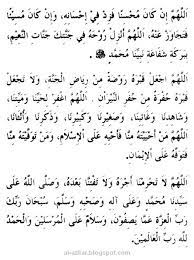 اَللّٰهُمَّ إِنْ كَانَ مُحْسِنًا فَزِدْ فِيْ إِحْسَانِهِ، وَإِنْ كَانَ مُسِيْئًا
فَتَجَاوَزْ عَنْهُ، اَللّٰهُمَّ أَنْزِلْ رُوْحَهُ فِيْ جَنَّتِكَ جَنَّاتِ النَّعِيْمِ،
بِبَرَكَةِ شَفَاعَةِ نَبِيِّنَا مُحَمَّدٍ ﷺ.
اَللّٰهُمَّ اجْعَلْ قَبْرَهُ رَوْضَةً مِنْ رِيَاضِ الْجَنَّةِ، وَلَا تَجْعَلْ
قَبْرَهُ حُفْرَةً مِنْ حُفَرِ النِّيْرَانِ، اَللّٰهُمَّ اغْفِرْ لِحَيِّنَا وَمَيِّتِنَا،
وَشَاهِدِنَا وَغَائِبِنَا، وَصَغِيْرِنَا وَكَبِيْرِنَا، وَذَكَرِنَا وَأُنْثَانَا،
اَللّٰهُمَّ مَنْ أَحْيَيْتَهُ مِنَّا فَأَحْيِهِ عَلَى الْإِسْلَامِ، وَمَنْ تَوَفَّيْتَهُ مِنَّا
فَتَوَفَّهُ عَلَى الْإِيْمَانِ.
اَللّٰهُمَّ لَا تَحْرِمْنَا أَجْرَهُ وَلَا تَفْتِنَّا بَعْدَهُ، وَصَلَّى اللهُ عَلَى
سَيِّدِنَا مُحَمَّدٍ وَعَلَى آلِهِ وَصَحْبِهِ وَسَلَّمَ، سُبْحَانَ رَبِّكَ
رَبِّ الْعِزَّةِ عَمَّا يَصِفُوْنَ، وَسَلَامٌ عَلَى الْمُرْسَلِيْنَ، وَالْحَمْدُ
لِلّٰهِ رَبِّ الْعَالَمِيْنَ.